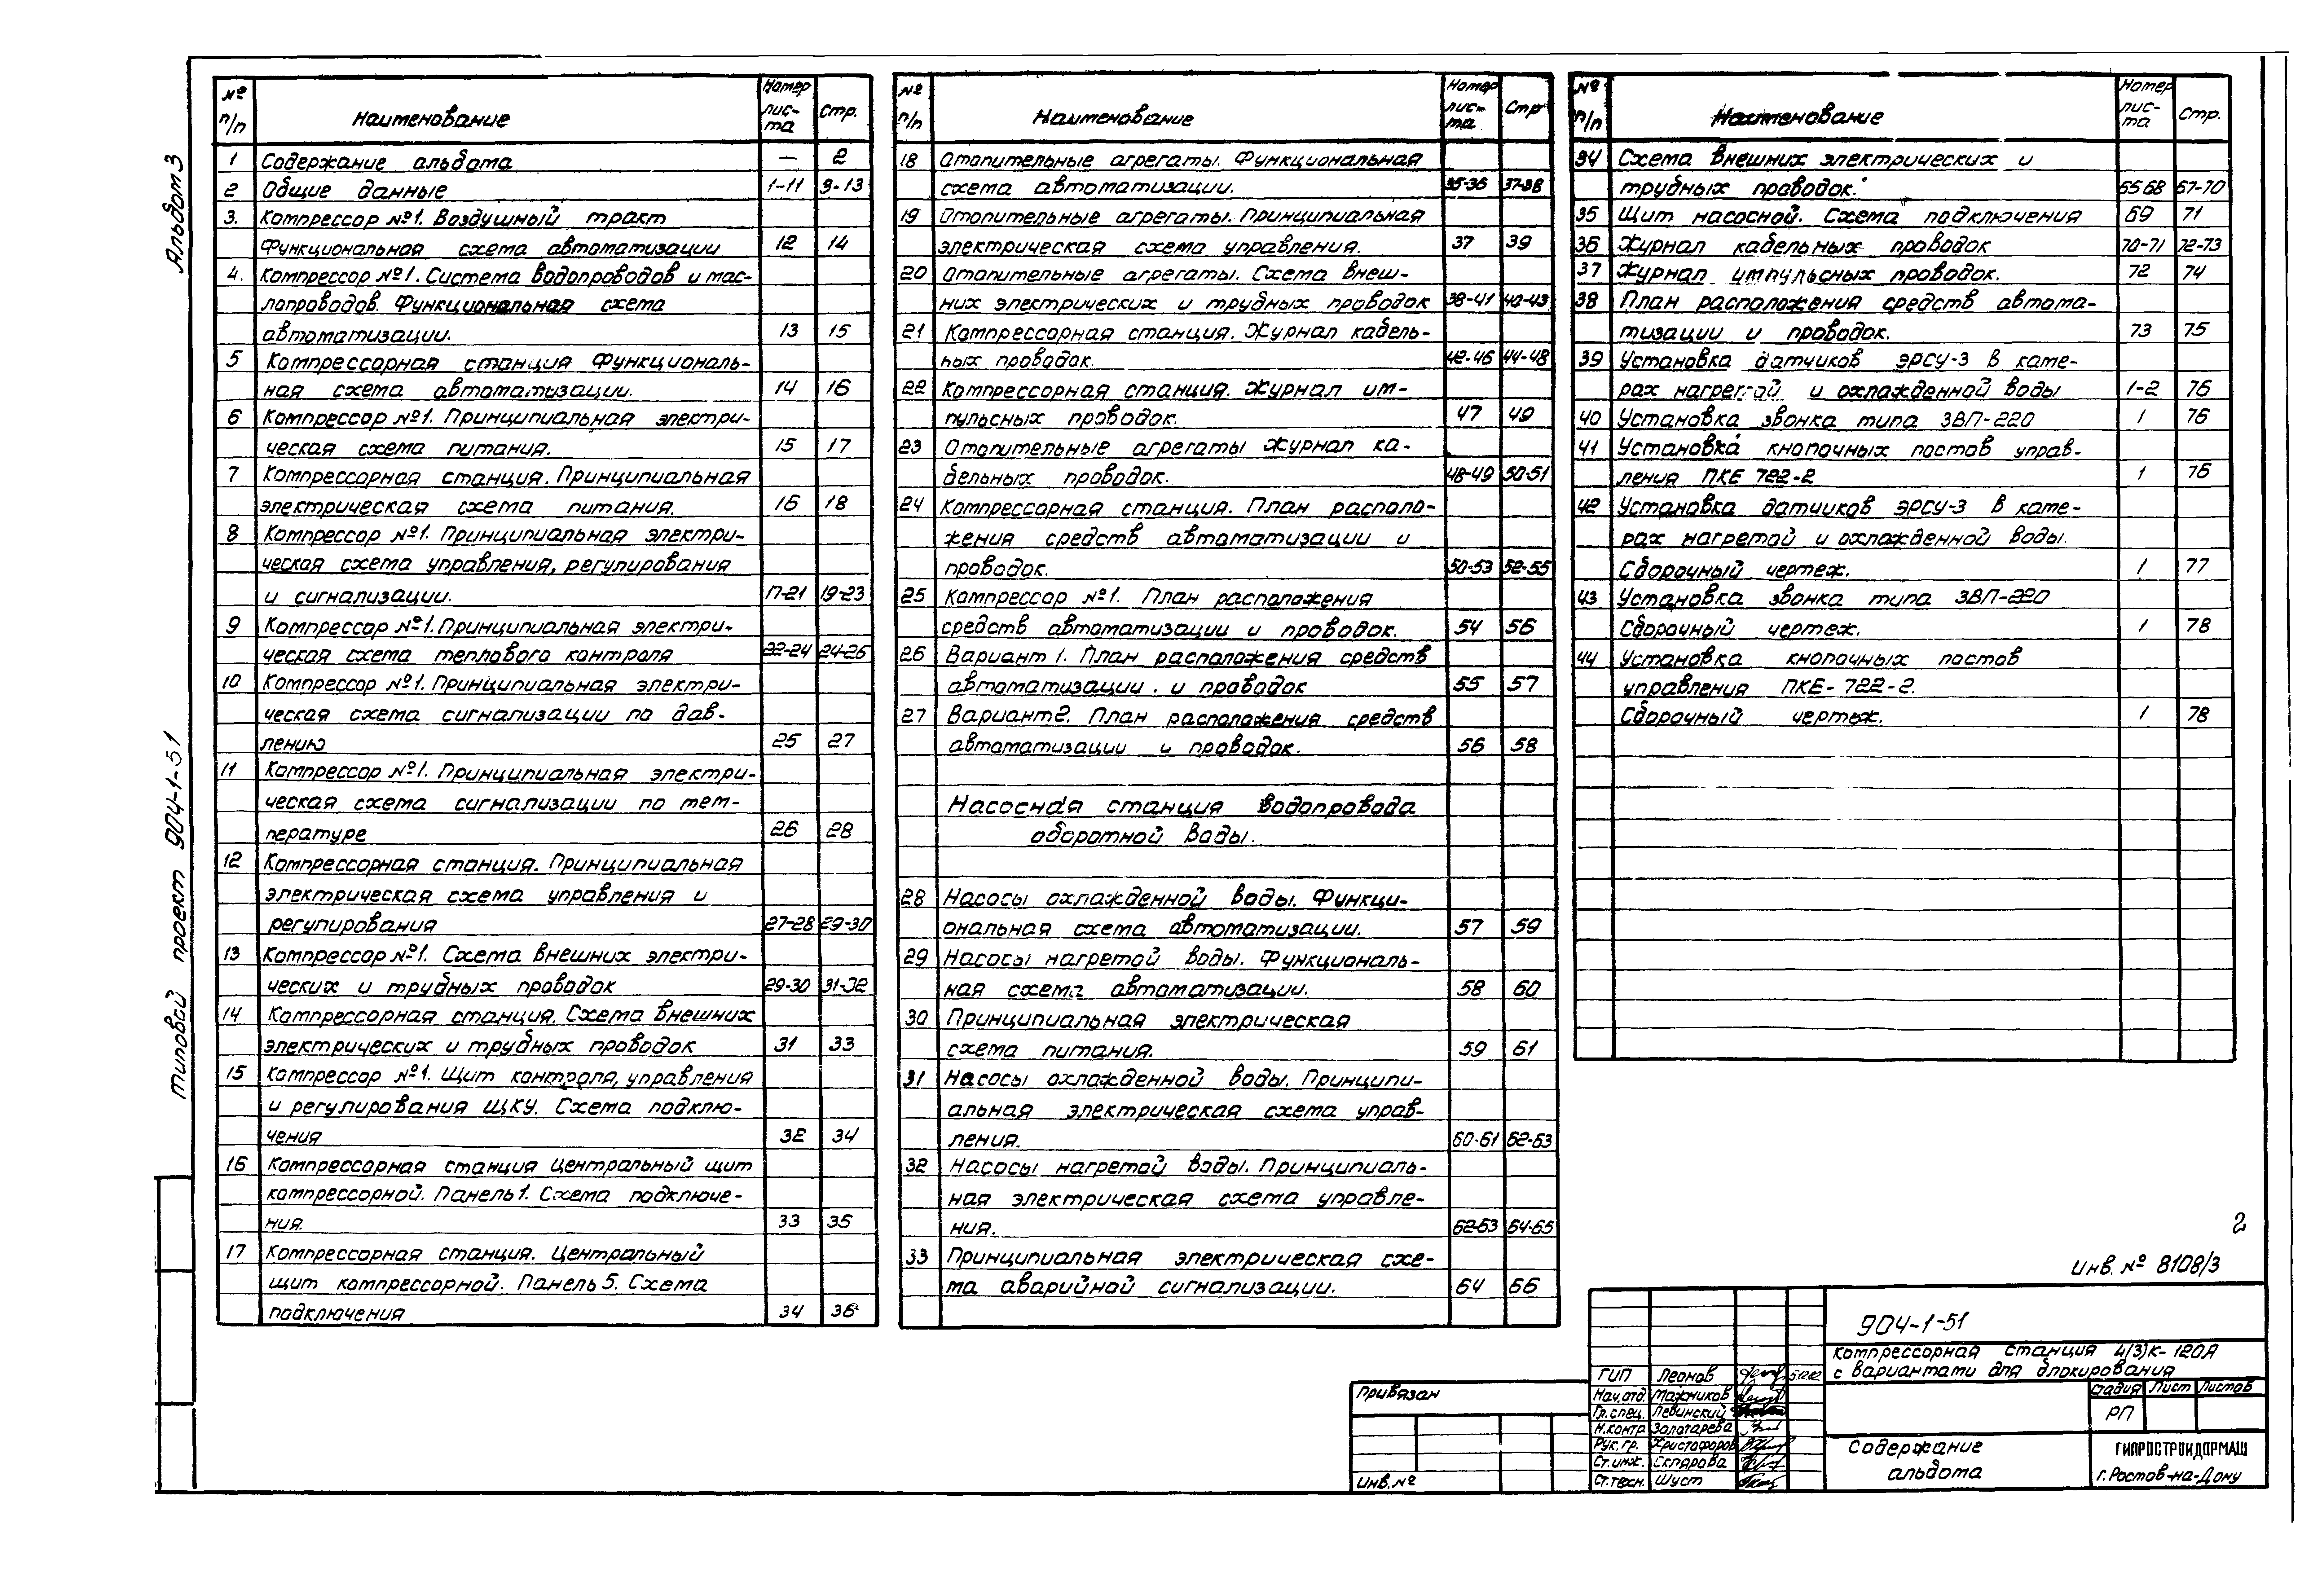 Альбом 3
типовой проект 904-1-51
№ п/п Наименование Номер листа Стр.
1 Содержание альбома — 2
2 Общие данные 1-11 3-13
3. Компрессор №1. Воздушный тракт
Функциональная схема автоматизации 12 14
4. Компрессор №1. Система водопроводов и мас-
лопроводов. Функциональная схема
автоматизации. 13 15
5 Компрессорная станция Функциональ-
ная схема автоматизации. 14 16
6 Компрессор №1. Принципиальная электри-
ческая схема питания. 15 17
7 Компрессорная станция. Принципиальная
электрическая схема питания. 16 18
8 Компрессор №1. Принципиальная электри-
ческая схема управления, регулирования
и сигнализации. 17-21 19-23
9 Компрессор №1. Принципиальная электри-
ческая схема теплового контроля 22-24 24-26
10 Компрессор №1. Принципиальная электри-
ческая схема сигнализации по дав-
лению 25 27
11 Компрессор №1. Принципиальная электри-
ческая схема сигнализации по тем-
пературе 26 28
12 Компрессорная станция. Принципиальная
электрическая схема управления и
регулирования 27-28 29-30
13 Компрессор №1. Схема внешних электри-
ческих и трубных проводок 29-30 31-32
14 Компрессорная станция. Схема внешних
электрических и трубных проводок 31 33
15 Компрессор №1. Щит контроля, управления
и регулирования ЩКУ. Схема подклю-
чения 32 34
16 Компрессорная станция Центральный щит
компрессорной. Панель 1. Схема подключе-
ния. 33 35
17 Компрессорная станция. Центральный
щит компрессорной. Панель 5. Схема
подключения 34 36
№ п/п Наименование Номер листа Стр
18 Отопительные агрегаты. Функциональная
схема автоматизации. 35-36 37-38
19 Отопительные агрегаты. Принципиальная
электрическая схема управления. 37 39
20 Отопительные агрегаты. Схема внеш-
них электрических и трубных проводок 38-41 40-43
21 Компрессорная станция. Журнал кабель-
ных проводок. 42-46 44-48
22 Компрессорная станция. Журнал им-
пульсных проводок. 47 49
23 Отопительные агрегаты Журнал ка-
бельных проводок. 48-49 50-51
24 Компрессорная станция. План располо-
жения средств автоматизации и
проводок. 50-53 52-55
25 Компрессор №1. План расположения
средств автоматизации и проводок. 54 56
26 Вариант 1. План расположения средств
автоматизации и проводок 55 57
27 Вариант 2. План расположения средств
автоматизации и проводок. 56 58
Насосная станция водопровода
оборотной воды.
28 Насосы охлажденной воды. Функци-
ональная схема автоматизации. 57 59
29 Насосы нагретой воды. Функциональ-
ная схема автоматизации. 58 60
30 Принципиальная электрическая
схема питания. 59 61
31 Насосы охлажденной воды. Принципи-
альная электрическая схема управ-
ления. 60-61 62-63
32 Насосы нагретой воды. Принципиаль-
ная электрическая схема управле-
ния. 62-63 64-65
33 Принципиальная электрическая схе-
ма аварийной сигнализации. 64 66
№ п/п Наименование Номер листа Стр.
34 Схема внешних электрических и
трубных проводок. 65 68 67-70
35 Щит насосной. Схема подключения 69 71
36 Журнал кабельных проводок 70-71 72-73
37 Журнал импульсных проводок. 72 74
38 План расположения средств автома-
тизации и проводок. 73 75
39 Установка датчиков ЭРСУ-3 в каме-
рах нагретой и охлажденной воды 1-2 76
40 Установка звонка типа ЗВП-220 1 76
41 Установка кнопочных постов управ-
ления ПКЕ 722-2 1 76
42 Установка датчиков ЭРСУ-3 в каме-
рах нагретой и охлажденной воды.
Сборочный чертеж. 1 77
43 Установка звонка типа ЗВП-220
Сборочный чертеж. 1 78
44 Установка кнопочных постов
управления ПКЕ-722-2.
Сборочный чертеж. 1 78
2
Инв. № 8108/3
904-1-51
Компрессорная станция 4(3)К-120А
с вариантами для блокирования
Привязан
Инв. №
ГИП Леонов
Нач. отд. Мажников
Гр. спец. Левинский
Н. контр Золотарева
Рук. гр. Христофоров
Ст. инж. Склярова
Ст. техн. Шуст
Стадия Лист Листов
РП
Содержание
альбома
ГИПРОСТРОЙДОРМАШ
г. Ростов-на-Дону